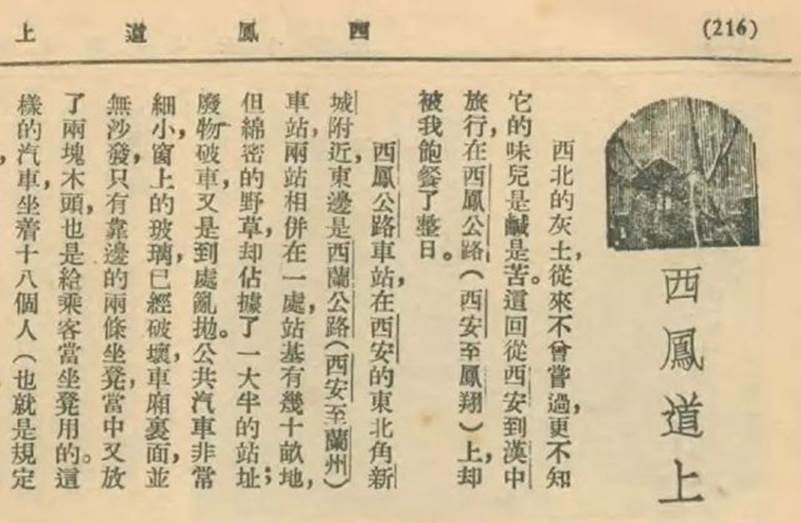 (216)
西鳳道上
西鳳道上
西北的灰土，從來不曾嘗過，更不知
它的味兒是鹹是苦。這回從西安到漢中
旅行，在西鳳公路（西安至鳳翔）上，却
被我飽餐了整日。
西鳳公路車站，在西安的東北角新
城附近，東邊是西蘭公路（西安至蘭州）
車站，兩站相併在一處，站基有幾十畝地，
但綿密的野草，却佔據了一大半的站址；
廢物破車，又是到處亂拋。公共汽車非常
細小，窗上的玻璃，已經破壞，車廂裏面，並
無沙發，只有靠邊的兩條坐凳，當中又放
了兩塊木頭，也是給乘客當坐凳用的。這
樣的汽車，坐着十八個人（也就是規定